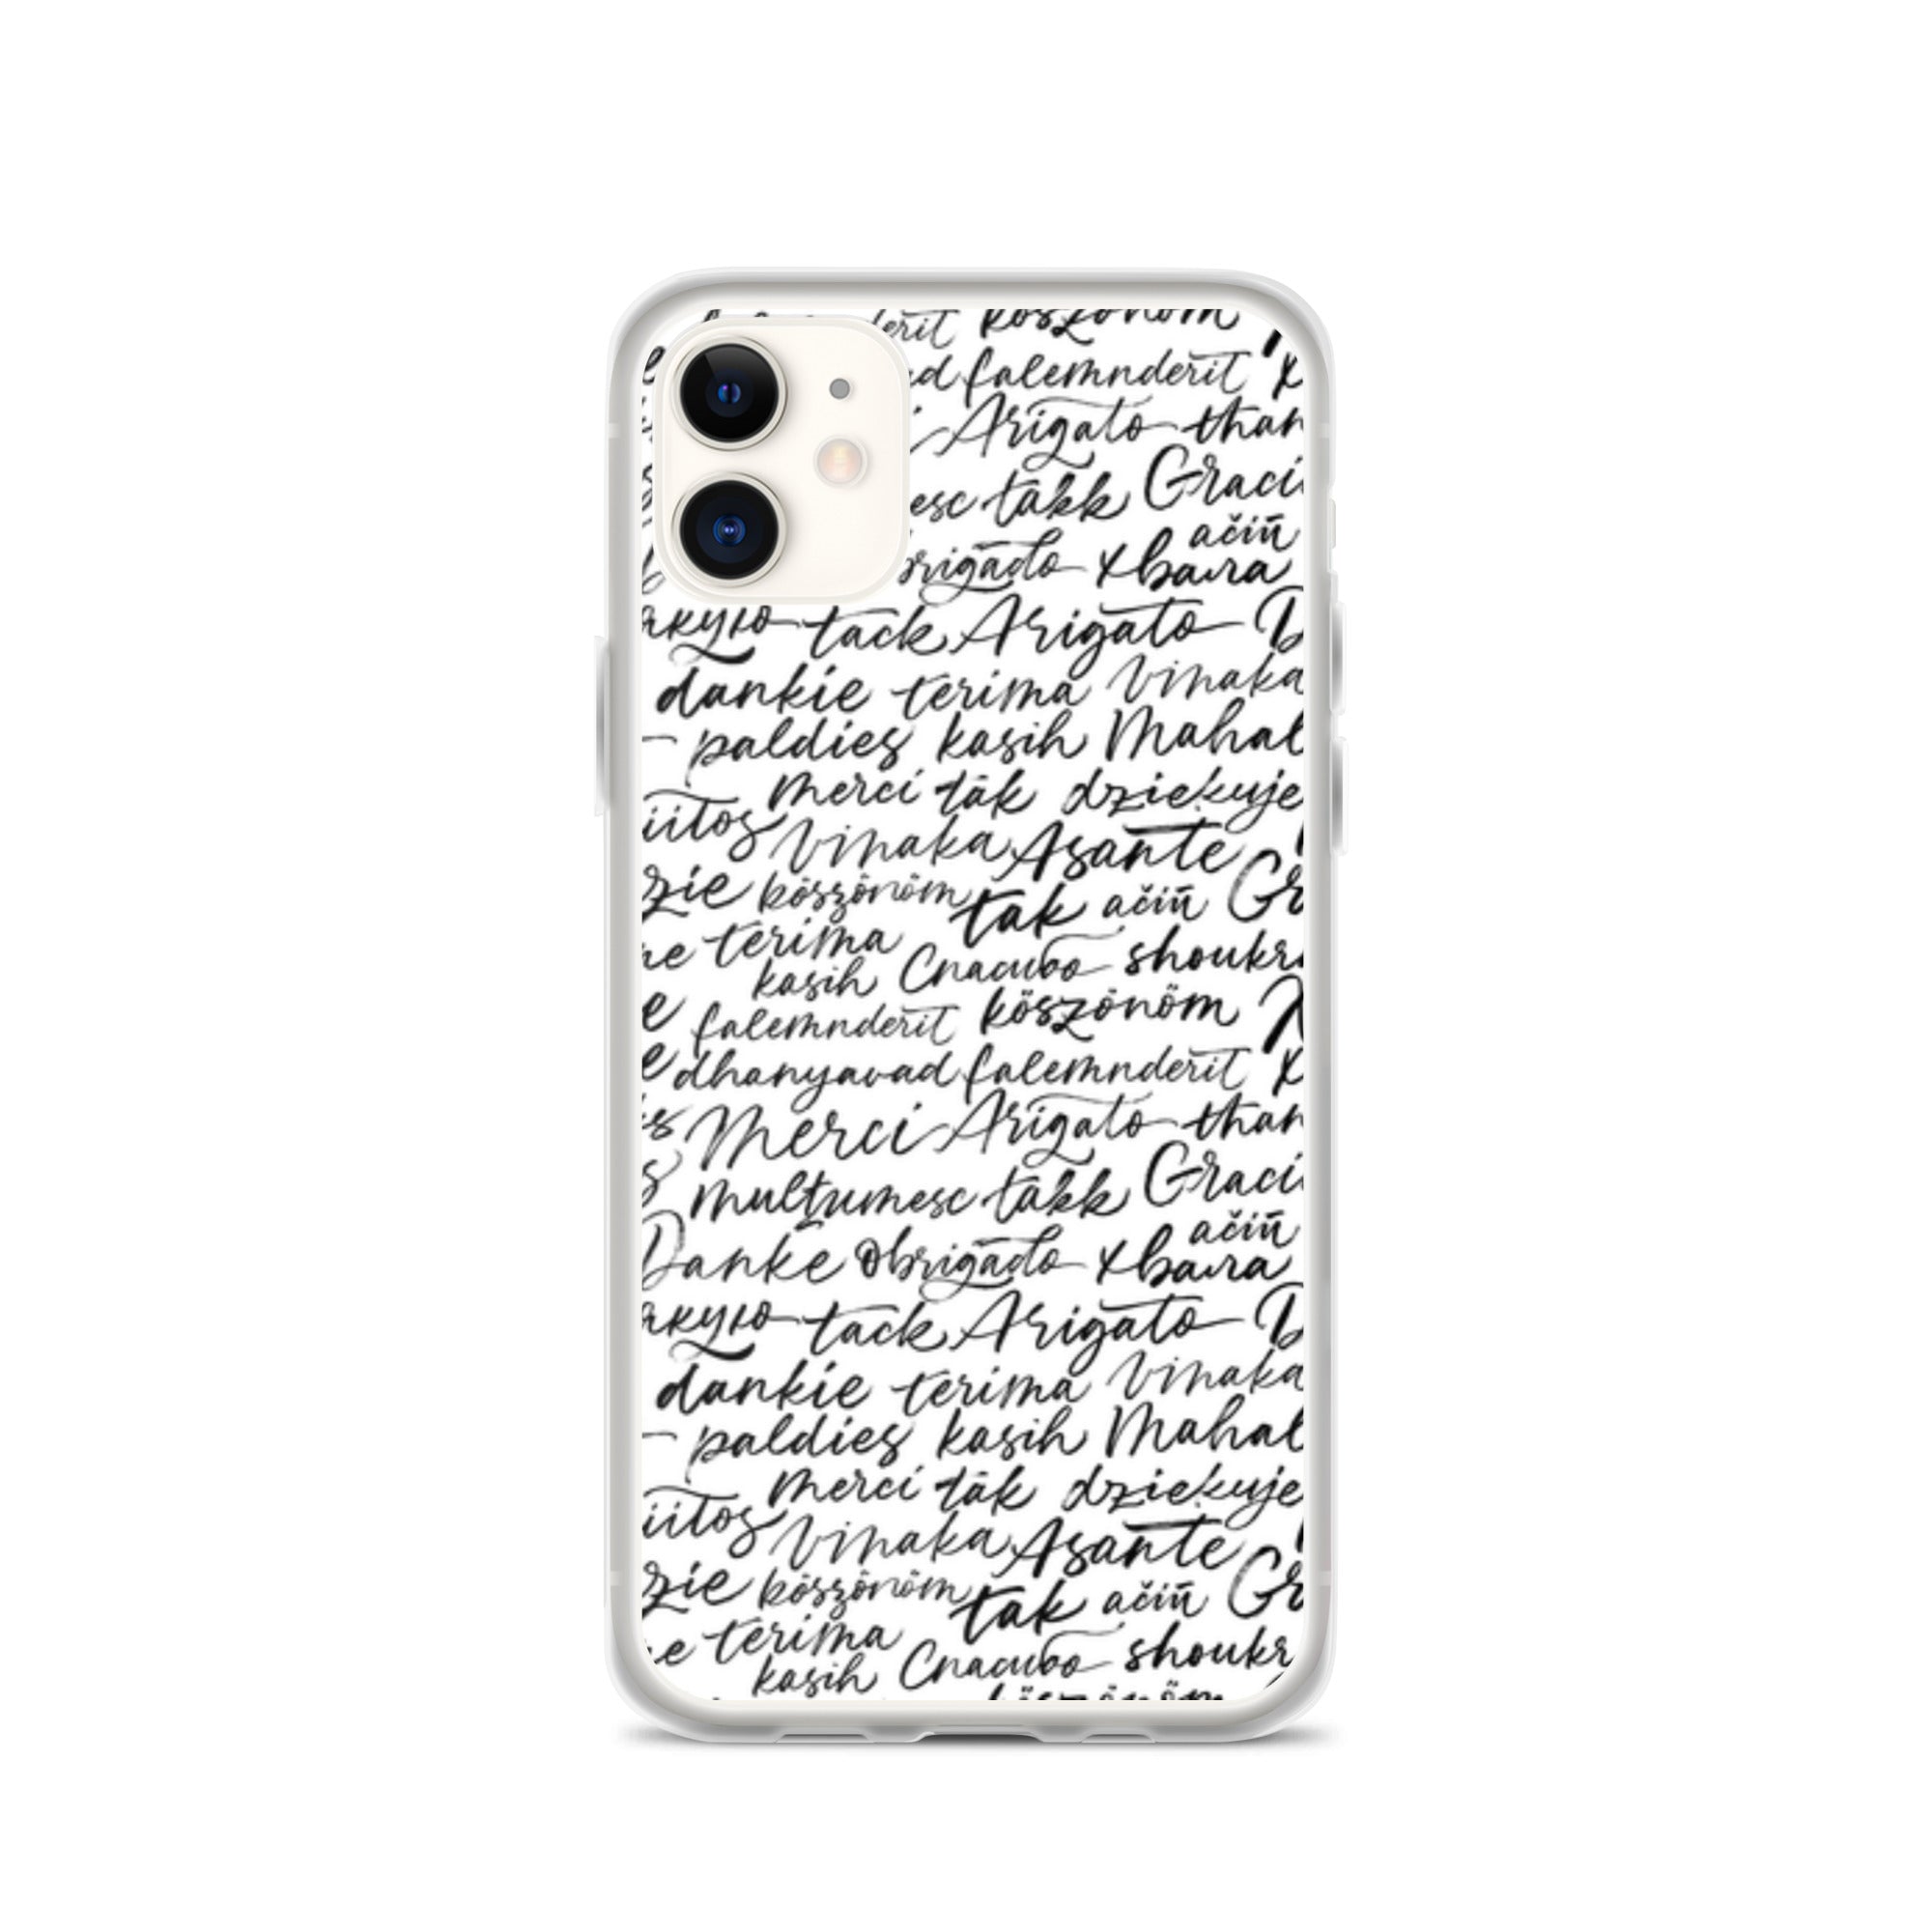 köszönöm
falemnderit
Arigato than
esc takk Graci
ačiū
brigado хвала
якую tack Arigato D
dankie terima vinaka
paldies kasih Mahal
merci tak dziekuje
iitos vinaka Asante
zie köszönöm tak ačiū Gr
ne terima
kasih Спасибо shoukr
e falemnderit köszönöm
e dhanyavad falemnderit х
s Merci Arigato than
s multumesc takk Graci
ačiū
Danke Obrigado хвала
якую tack Arigato D
dankie terima vinaka
paldies kasih Mahal
merci tak dziekuje
iitos vinaka Asante
zie köszönöm tak ačiū Gr
e terima
kasih Спасибо shoukr
köszönöm